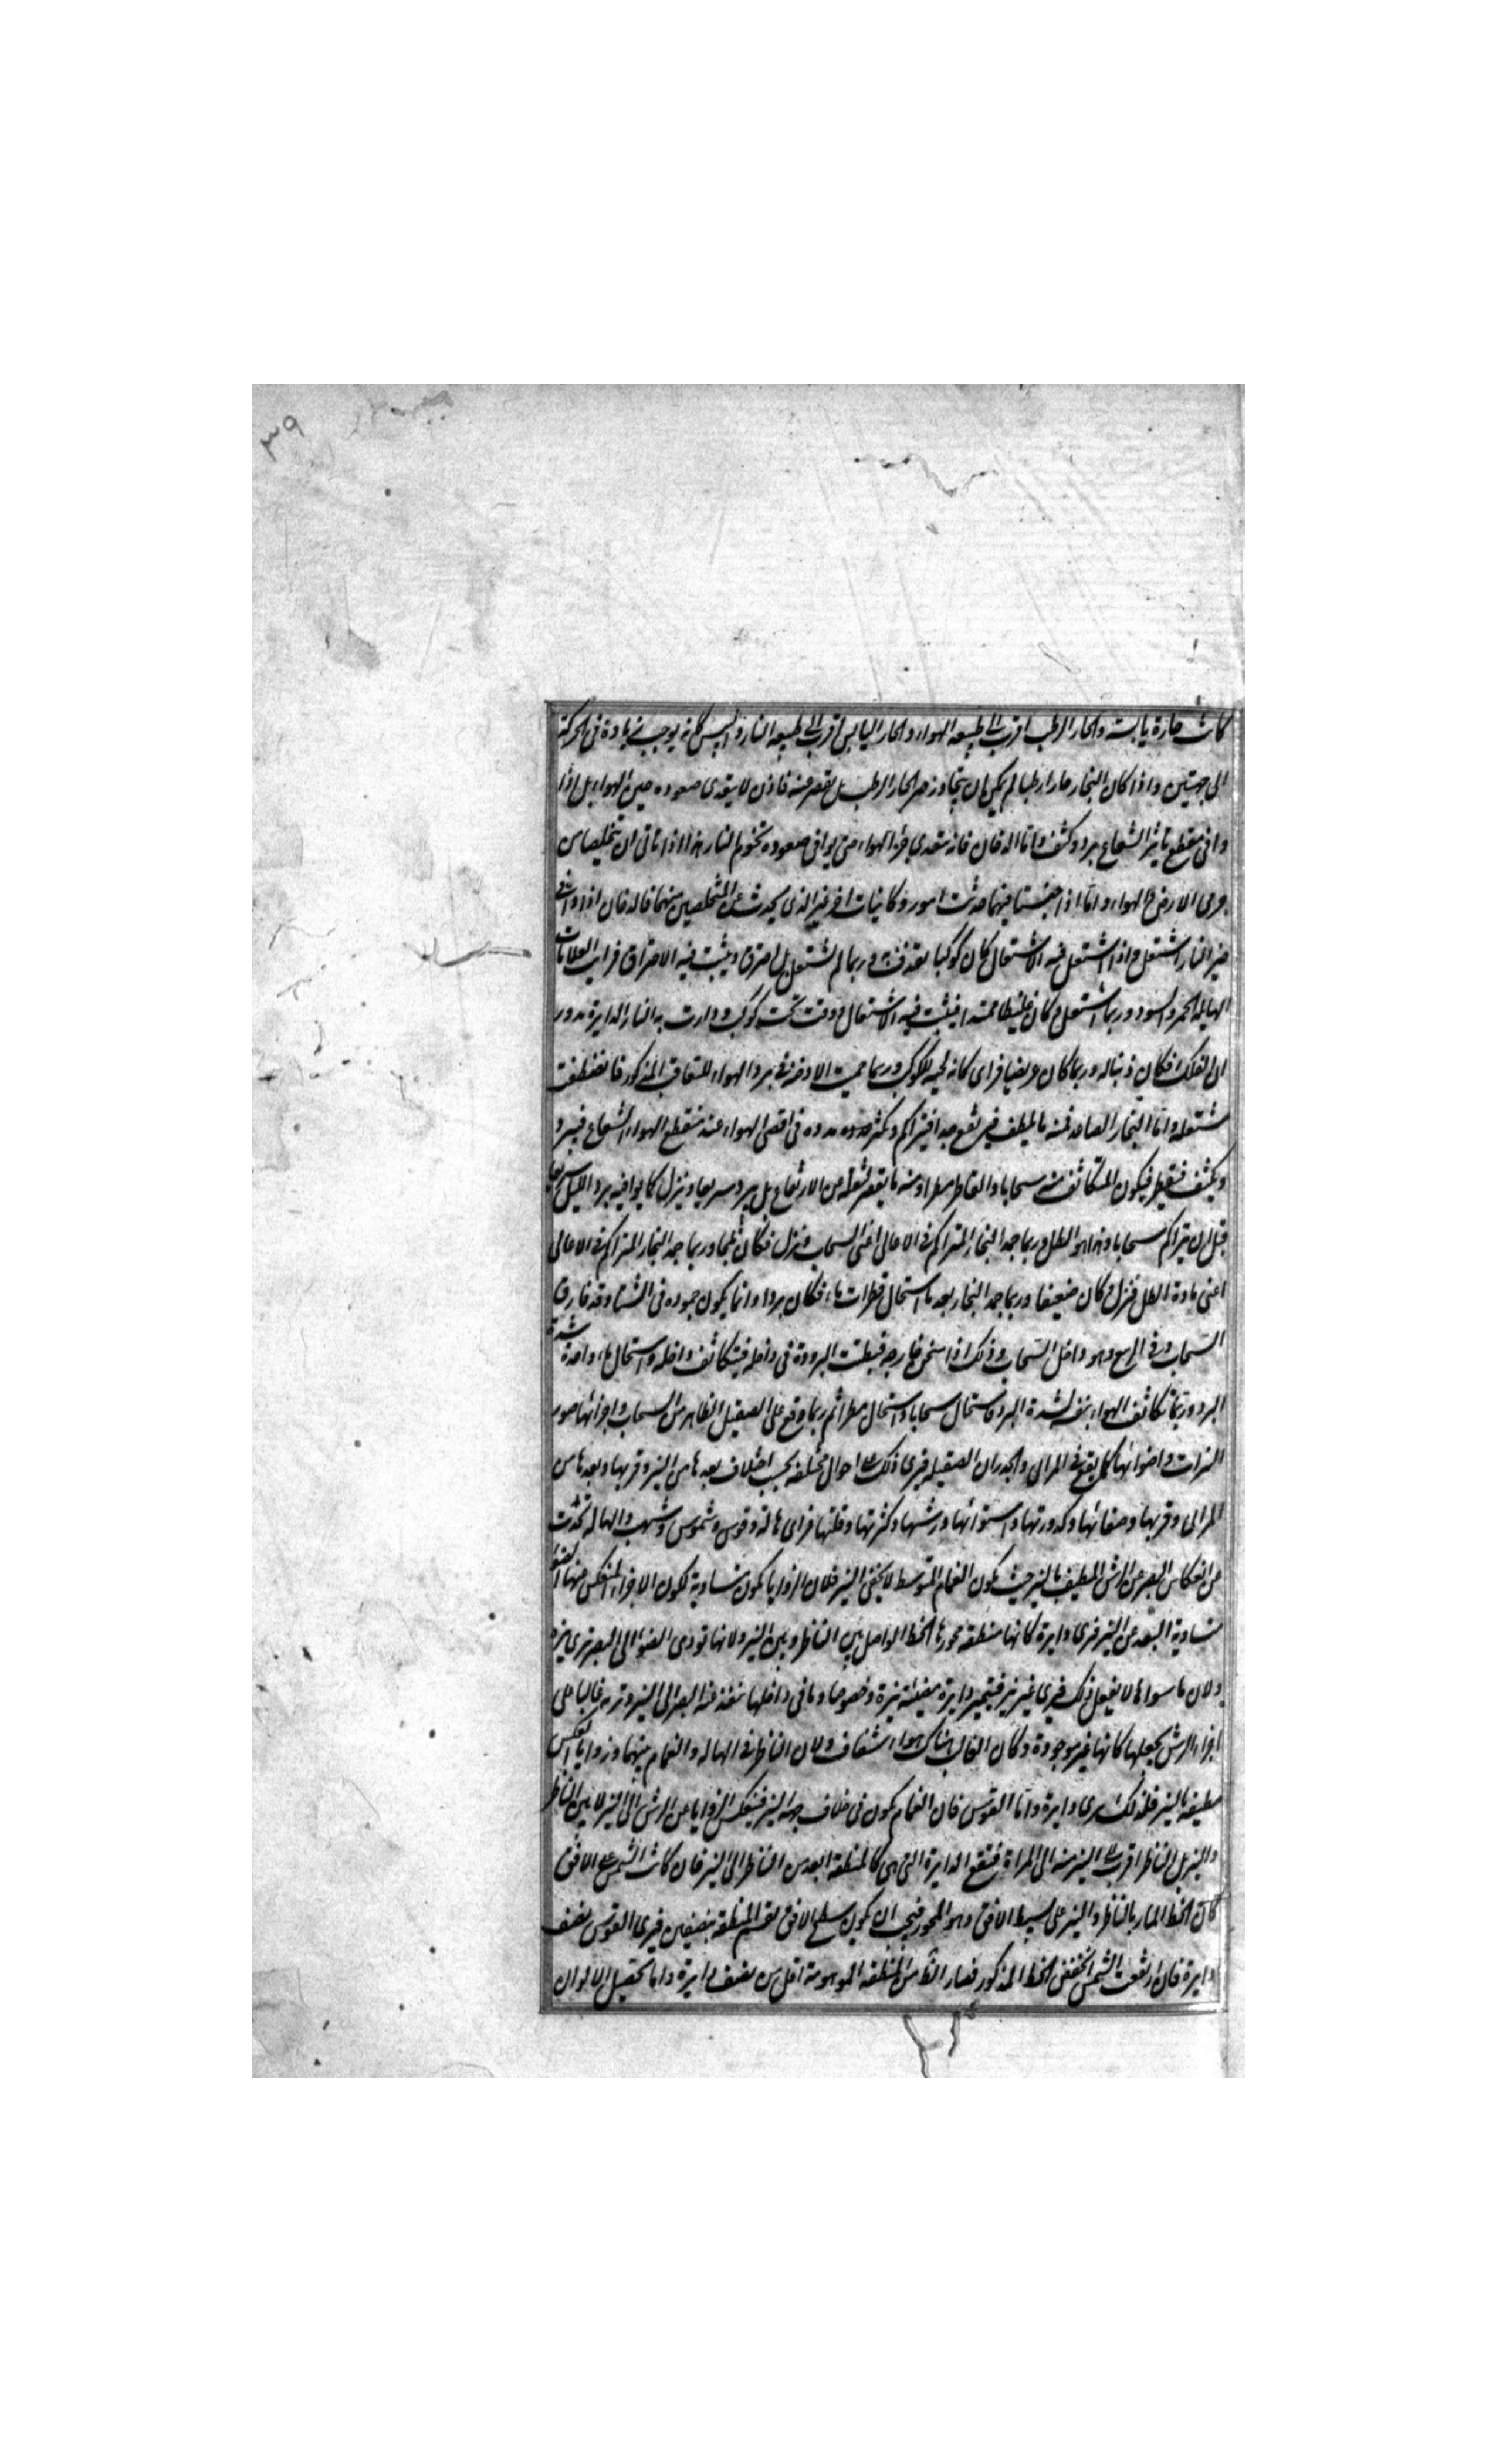 ٣٩
كانت حارة يابسة والحار الرطب اقرب الى طبيعة الهواء والحار اليابس اقرب الى طبيعة النار واليبس كانه يوجب زيادة فى الحركة
الى جهتين واذا كان البخار حارا رطبا لم يمكن ان يتجاوز حيز الحار الرطب بل يقصر عنه فاذن لا يتعدى صعوده حيز الهواء بل اذا
وافى منقطع تاثير الشعاع برد وكثف واما الدخان فانه يتعدى حيز الهواء حتى يوافى صعوده تخوم النار هذا اذا تاتى ان يتخلصا من
جرمى الارض والهواء واما اذا احتبستا فيهما حدثت امور وكاينات اخر غير الذى يحدث عن المتخلصين منهما فالدخان اذا وافى
حيز النار اشتعل واذا اشتعل فيه الاشتعال كان كوكبا يقذف به وربما لم يشتعل بل احترق ويثبت فيه الاحتراق فرايت العلامات
الهايلة الحمر والسود وربما اشتعل وكان غليظا ممتدا فيثبت فيه الاشتعال ووقف تحت كوكب ودارت به النار الدايرة بدور
ان الفلك فكان ذنبا له وربما كان عريضا فراى كانه لحية للكوكب وربما حميت الادخنة فى برد الهواء للتعاقب المذكور فانضغطت
مشتعلة واما البخار الصاعد فمنه ما يلطف فيرتفع جدا فيتراكم ويكثر مدده فى اقصى الهواء عند منقطع الهواء الشعاع فيبرد
ويكثف فيقطر فيكون المتكاثف منه سحابا والقاطر مطرا ومنه ما يقصر لثقله عن الارتفاع بل يبرد سريعا وينزل كما يوافيه برد الليل سريعا
قبل ان يتراكم سحابا وهذا هو الطل وربما جمد البخار المتراكم فى الاعالى اعنى السحاب فنزل فكان ثلجا وربما جمد البخار المتراكم فى الاعالى
اعنى مادة الطل فنزل وكان ضعيفا وربما جمد البخار بعد ما استحال قطرات ماء فكان بردا وانما يكون جموده فى الشتا وقد فارق
السحاب وفى الربيع وهو داخل السحاب وذلك اذا سخن خارجه فبطنت البرودة فى داخله فيتكاثف داخله واستحال ماء واجمده شدة
البرد وربما تكاثف الهواء نفسه لشدة البرد فاستحال سحابا واستحال مطرا ثم ربما وقع على الصقيل الظاهر من السحاب واجزائها صور
النيرات واضوائها كما يقع فى المرايى والجدران الصقيلة فيرى ذلك على احوال مختلفة بحسب اختلاف بعدها من النير وقربها وبعدها من
المرايى وقربها وصفائها وكدورتها واستوائها ورشها وكثرتها وقلتها فراى هالة وقوس وشموس وشهب والهالة تحدث
عن انعكاس البصر عن الرش المطيف بالنير حيث يكون الغمام المتوسط لا يخفى النير فلان الزوايا تكون متساوية لكون الاجزاء المنعكس منها الضوء
متساوية البعد عن النير فترى دايرة كانها منطقة محورها الخط الواصل بين الناظر وبين النير ولانها تودى الضوء الى البصر ترى نيرة
ولان ما سواها لا يفعل ذلك فيرى غير نير فيتميز دايرة مضيئة نيرة وخصوصا وما فى داخلها ينفذ عنه البصر الى النير وتريه غالبا على
اجزاء الرش يجعلها كانها غير موجودة وكان الغالب هناك هواء شفاف ولان الناظر فى الهالة والغمام بينهما وزوايا العكس
مطيفة بالنير فلذلك يرى دايرة واما القوس فان الغمام يكون فى خلاف جهة النير فينعكس الزوايا عن الرش الى النير لا بين الناظر
والنير بل الناظر اقرب الى النير منه الى المراة فتقع الدايرة التى هى كالمنطقة ابعد من الناظر الى النير فان كانت الشمس على الافق
كان الخط المار بالناظر والنير على بسيط الافق وهو المحور فيجب ان يكون سطح الافق يقسم المنطقة بنصفين فيرى القوس نصف
دايرة فان ارتفعت الشمس انخفض الخط المذكور فصار الظاهر من المنطقة الموهومة اقل من نصف دايرة واما تحصيل الالوان